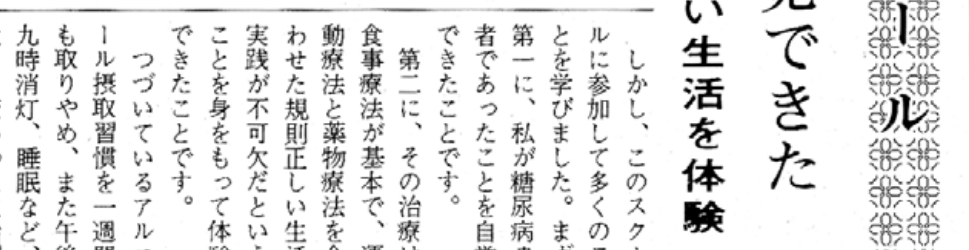 ール
できた
い生活を体験
しかし、このスク
ルに参加して多くの
とを学びました。ま
第一に、私が糖尿病
者であったことを自
できたことです。
第二に、その治療
食事療法が基本で、
動療法と薬物療法を
わせた規則正しい生
実践が不可欠だとい
ことを身をもって体
できたことです。
つづいているアル
ール摂取習慣を一週
も取りやめ、また午
九時消灯、睡眠など、